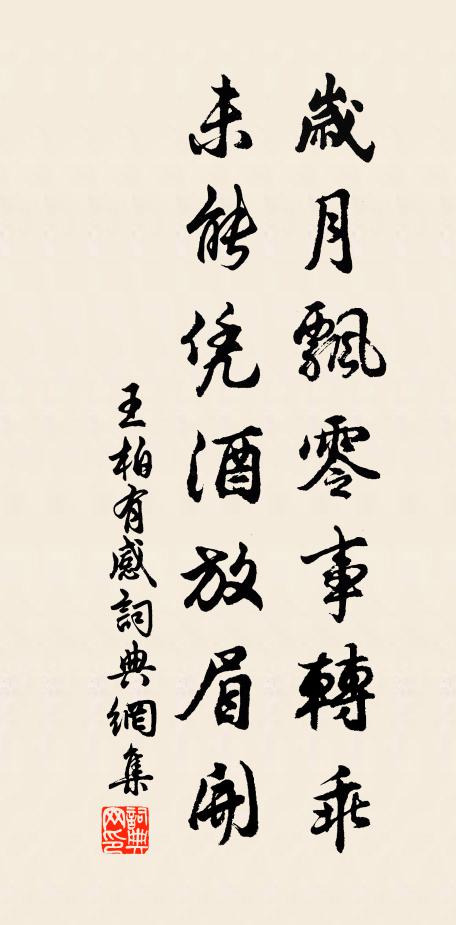 歲月飄零事轉乖
未能凭酒放眉開
王柏有感詞典網集
詞典网印